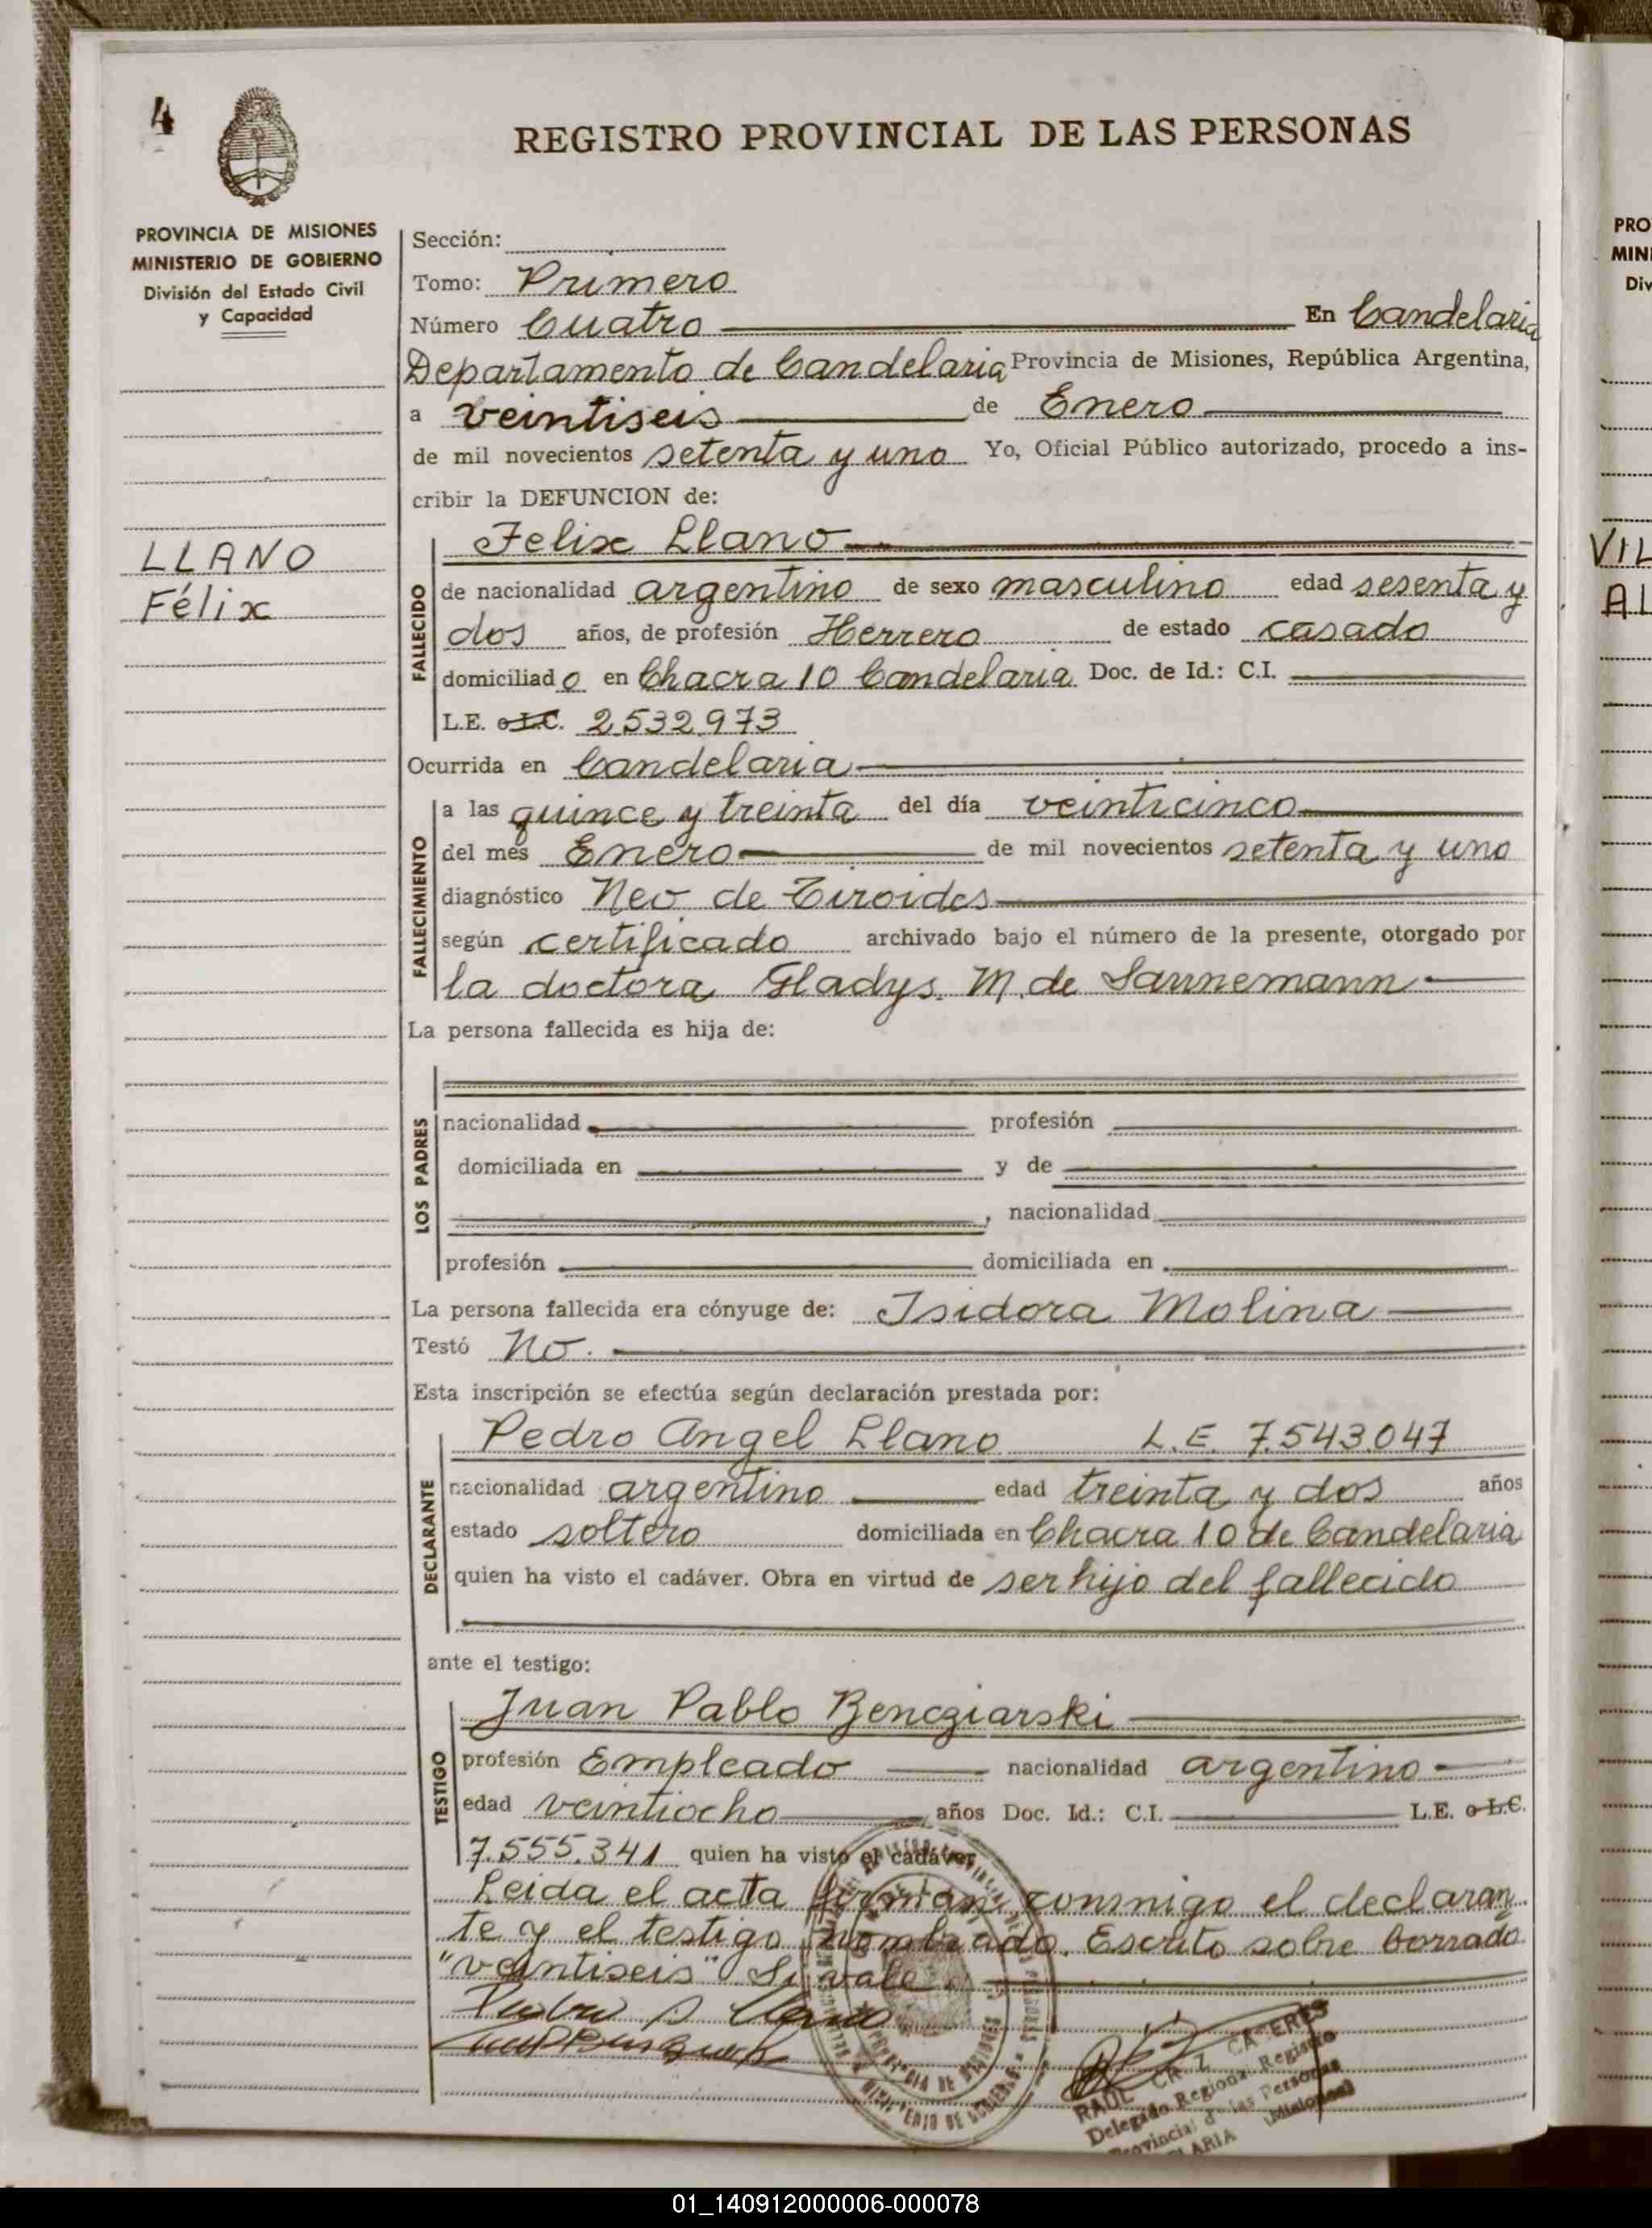 4
REGISTRO PROVINCIAL DE LAS PERSONAS
PROVINCIA DE MISIONES
MINISTERIO DE GOBIERNO
División del Estado Civil
y Capacidad
LLANO
Félix
Sección:
Tomo: Primero
Número Cuatro En Candelaria
Departamento de Candelaria Provincia de Misiones, República Argentina,
a veintiseis de Enero
de mil novecientos setenta y uno Yo, Oficial Público autorizado, procedo a ins-
cribir la DEFUNCION de:
FALLECIDO
Felix Llano
de nacionalidad argentino de sexo masculino edad sesenta y
dos años, de profesión Herrero de estado casado
domiciliado en Chacra 10 Candelaria Doc. de Id.: C.I.
L.E. o L.C. 2.532.973
Ocurrida en Candelaria
FALLECIMIENTO
a las quince y treinta del día veinticinco
del mes Enero de mil novecientos setenta y uno
diagnóstico Neo de Tiroides
según certificado archivado bajo el número de la presente, otorgado por
la doctora Gladys M. de Sannemann
La persona fallecida es hija de:
LOS PADRES
nacionalidad profesión
domiciliada en y de
, nacionalidad
profesión domiciliada en
La persona fallecida era cónyuge de: Isidora Molina
Testó No.
Esta inscripción se efectúa según declaración prestada por:
DECLARANTE
Pedro Angel Llano L.E. 7.543.047
nacionalidad argentino edad treinta y dos años
estado soltero domiciliada en Chacra 10 de Candelaria
quien ha visto el cadáver. Obra en virtud de ser hijo del fallecido
ante el testigo:
TESTIGO
Juan Pablo Bencziarski
profesión Empleado nacionalidad argentino
edad veintiocho años Doc. Id.: C.I. L.E. o L.C.
7.555.341 quien ha visto el cadáver
Leida el acta firman conmigo el declaran
te y el testigo nombrado. Escrito sobre borrado
"veintiseis" Si vale
RAUL CACERES
Delegado Regional Registro
Provincial de las Personas
(Misiones)
PRO
MIN
Div
VIL
AL
01_140912000006-000078